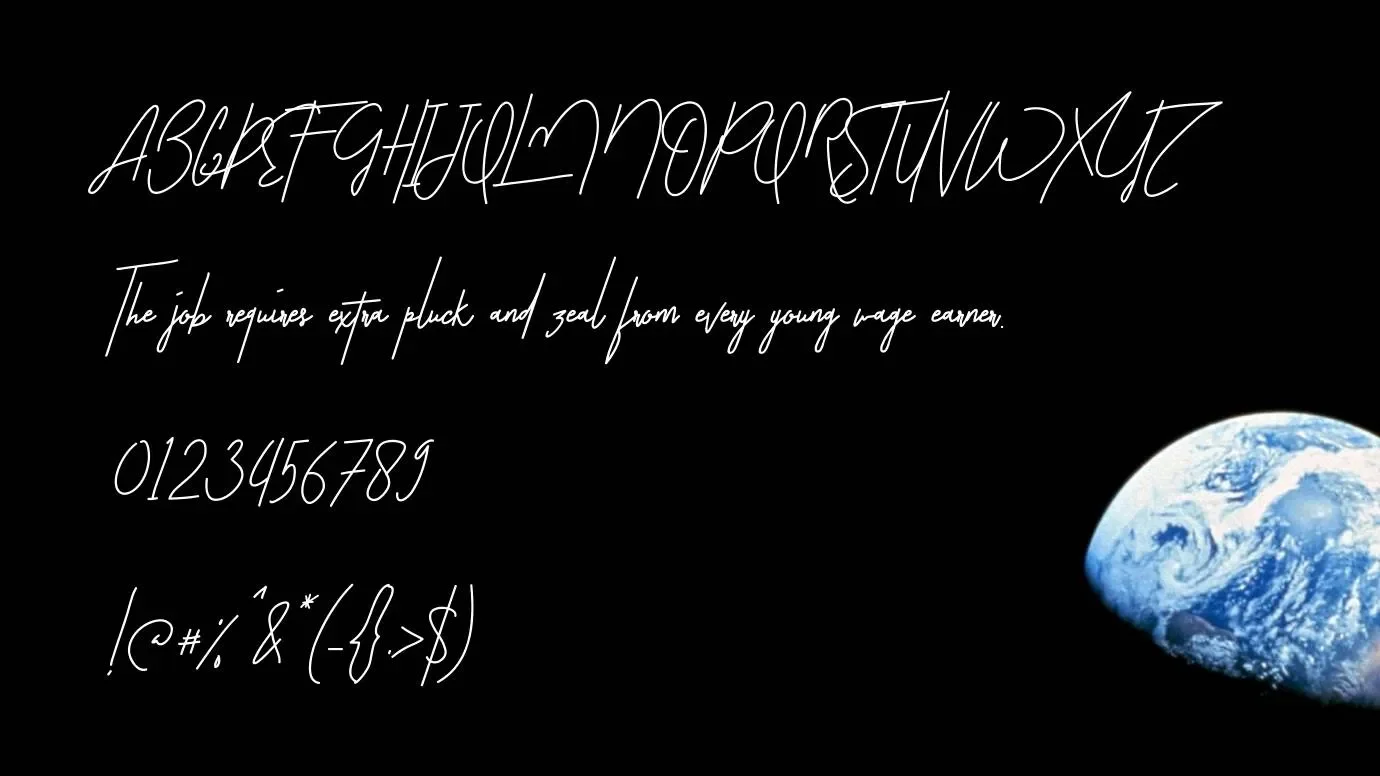 ABCDEFGHIJKLMNOPQRSTUVWXYZ
The job requires extra pluck and zeal from every young wage earner.
0123456789
!@#%^&*(-{}.>$)